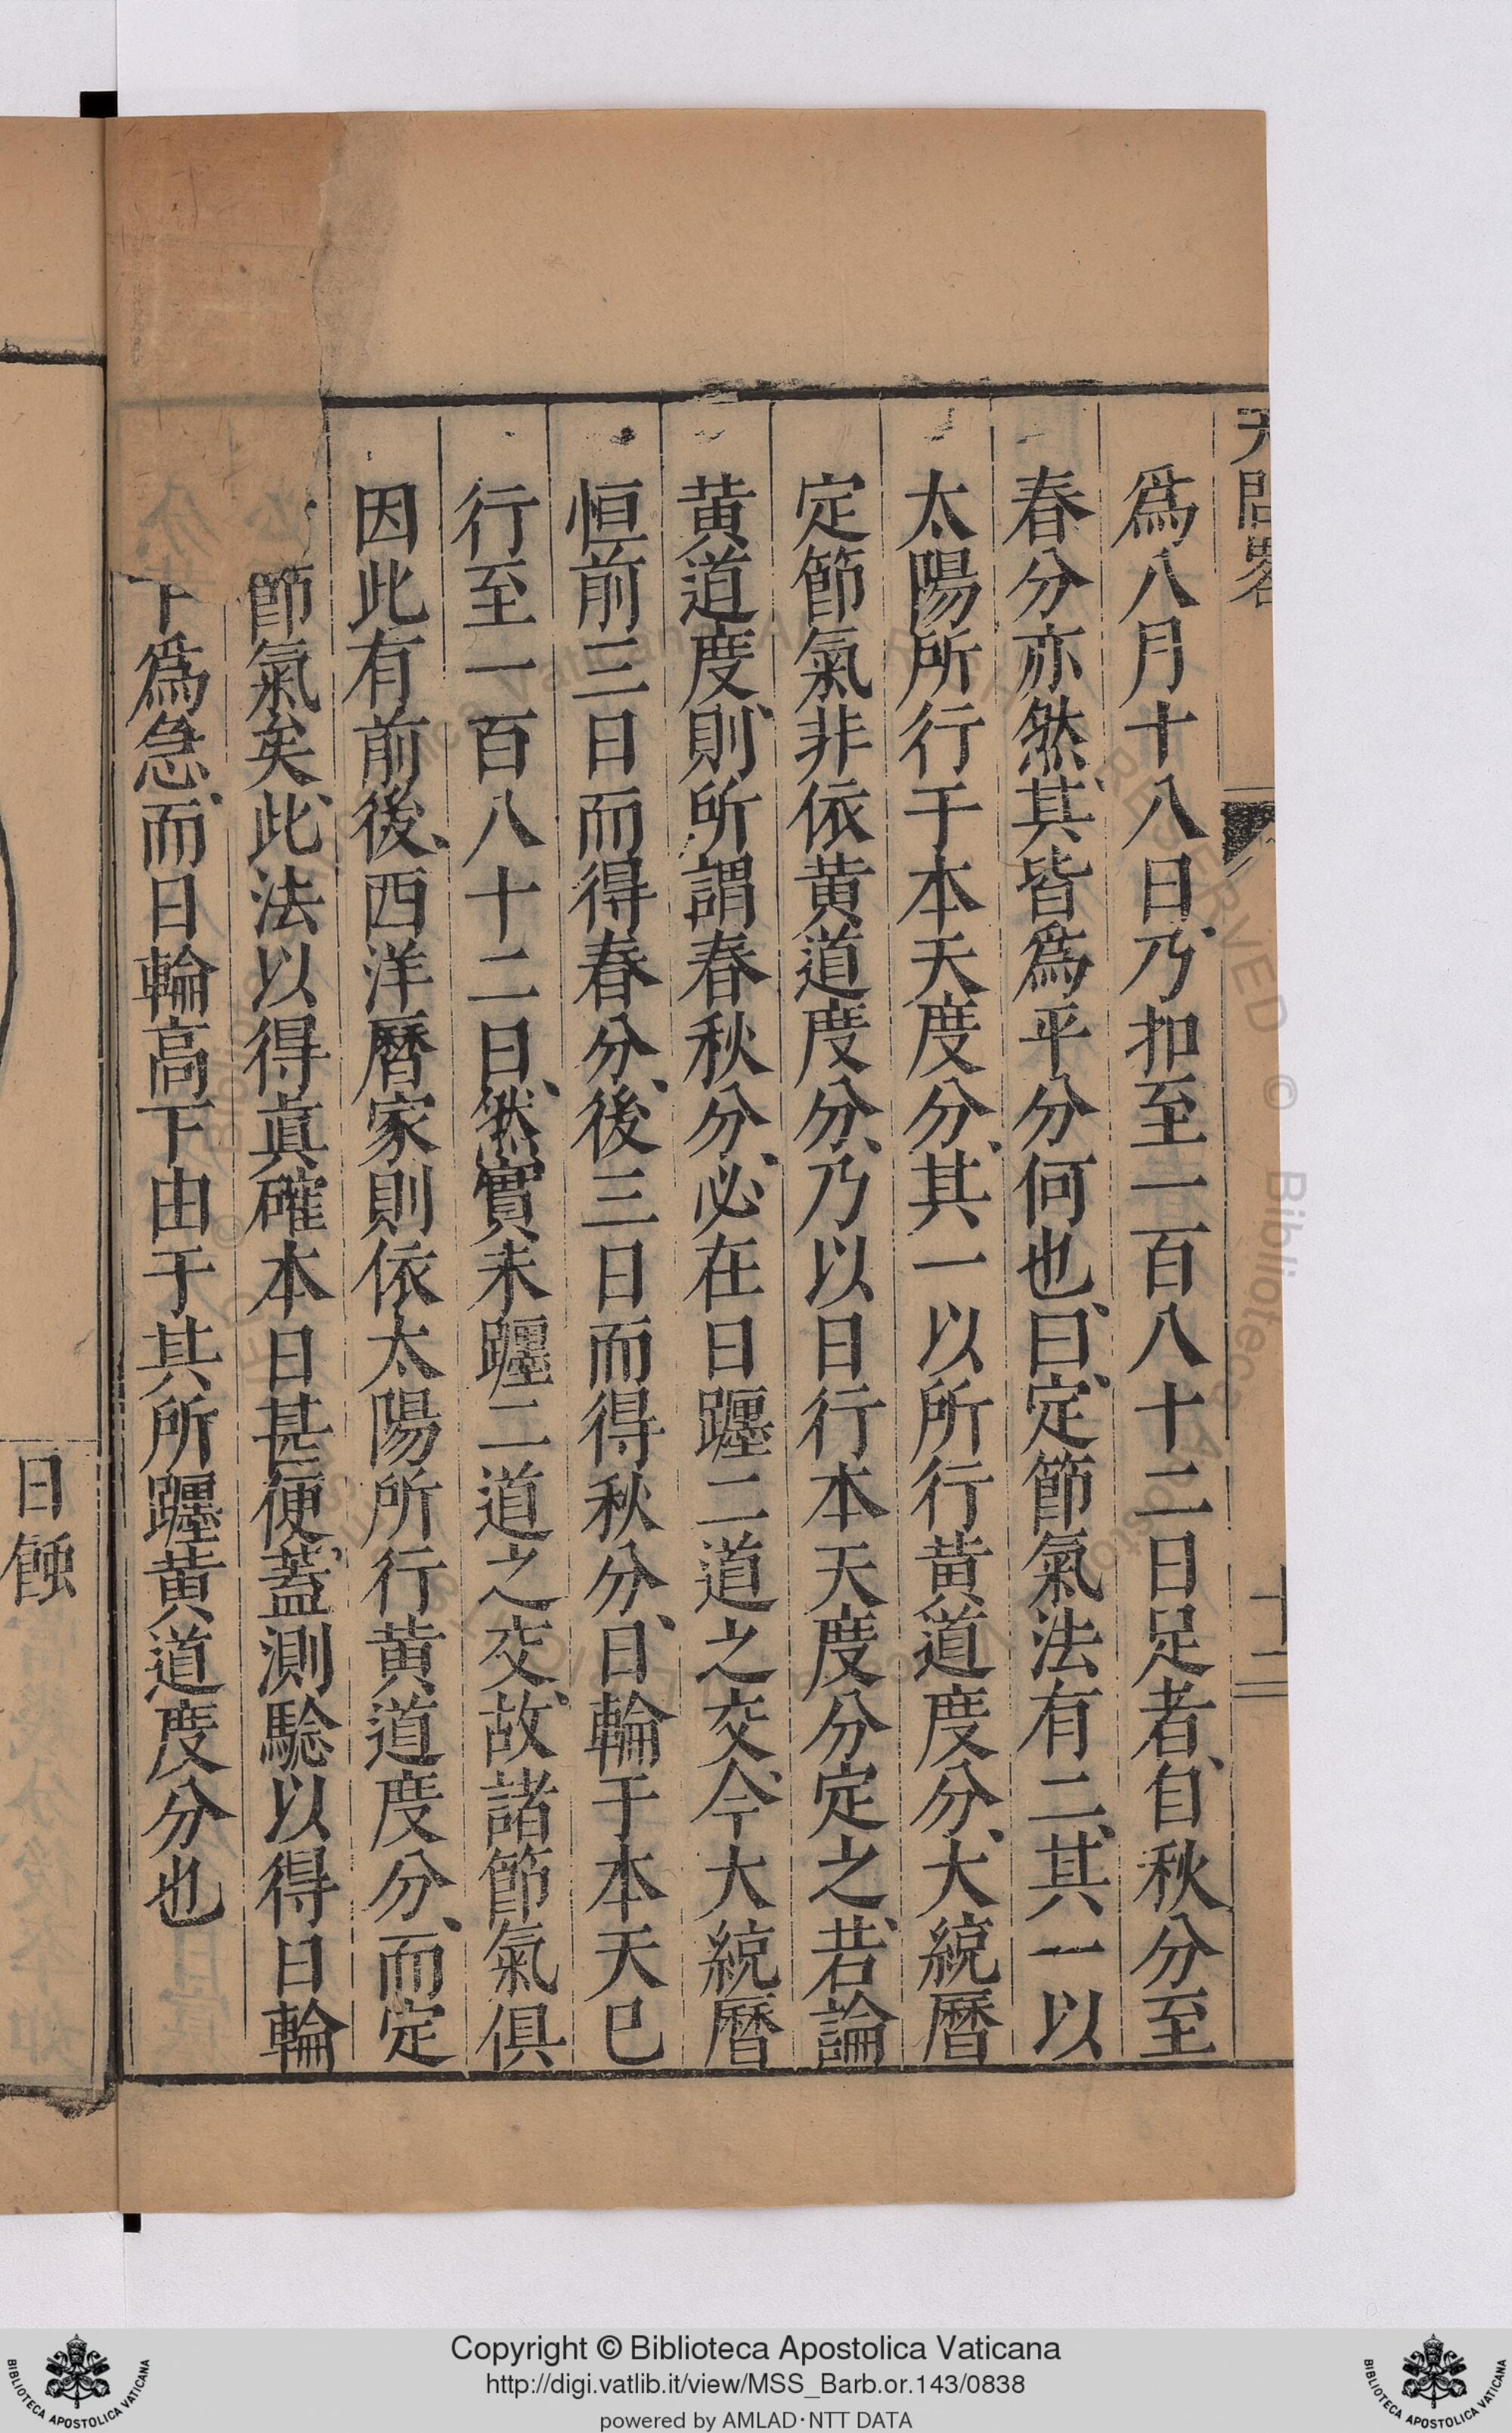 天問畧
十二
爲八月十八日、乃扣至一百八十二日足者、自秋分至
春分亦然、其皆爲平分何也、曰、定節氣法有二、其一以
太陽所行于本天度分、其一以所行黃道度分、大統曆
定節氣非依黃道度分、乃以日行本天度分定之、若論
黃道度、則所謂春秋分、必在日躔二道之交、今大統曆
恒前三日而得春分、後三日而得秋分、日輪于本天已
行至一百八十二日、然實未躔二道之交、故諸節氣俱
因此有前後、西洋曆家則依太陽所行黃道度分、而定
節氣矣、此法以得眞確本日甚便、蓋測驗以得日輪
下爲急、而日輪高下由于其所躔黃道度分也
日餶
Copyright © Biblioteca Apostolica Vaticana
http://digi.vatlib.it/view/MSS_Barb.or.143/0838
powered by AMLAD·NTT DATA
BIBLIOTECA APOSTOLICA VATICANA
BIBLIOTECA APOSTOLICA VATICANA